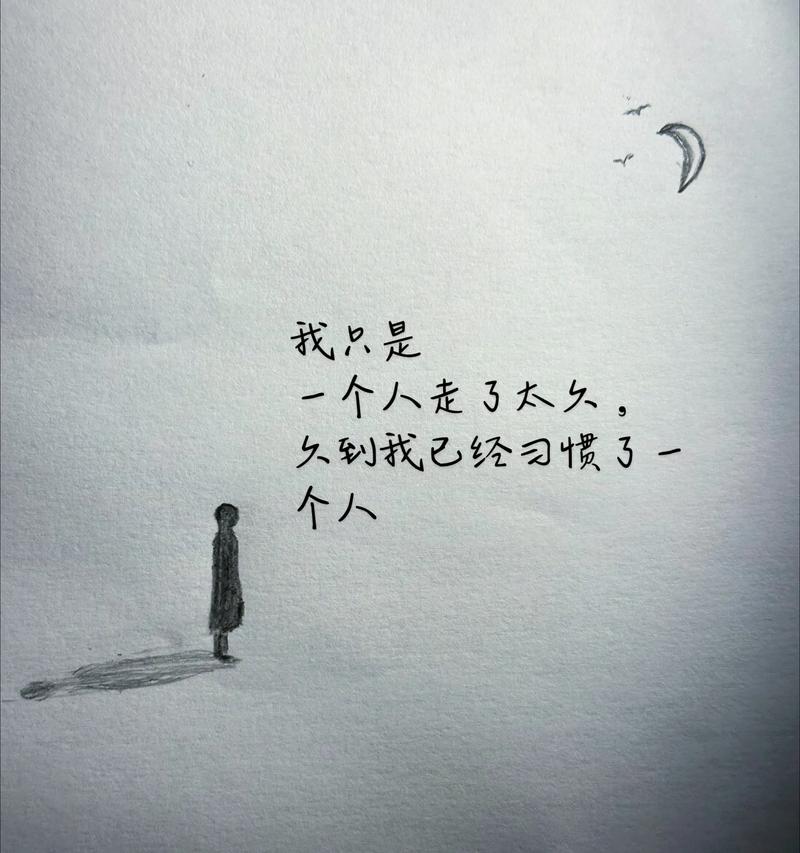 我只是
一个人走了太久，
久到我已经习惯了一
个人